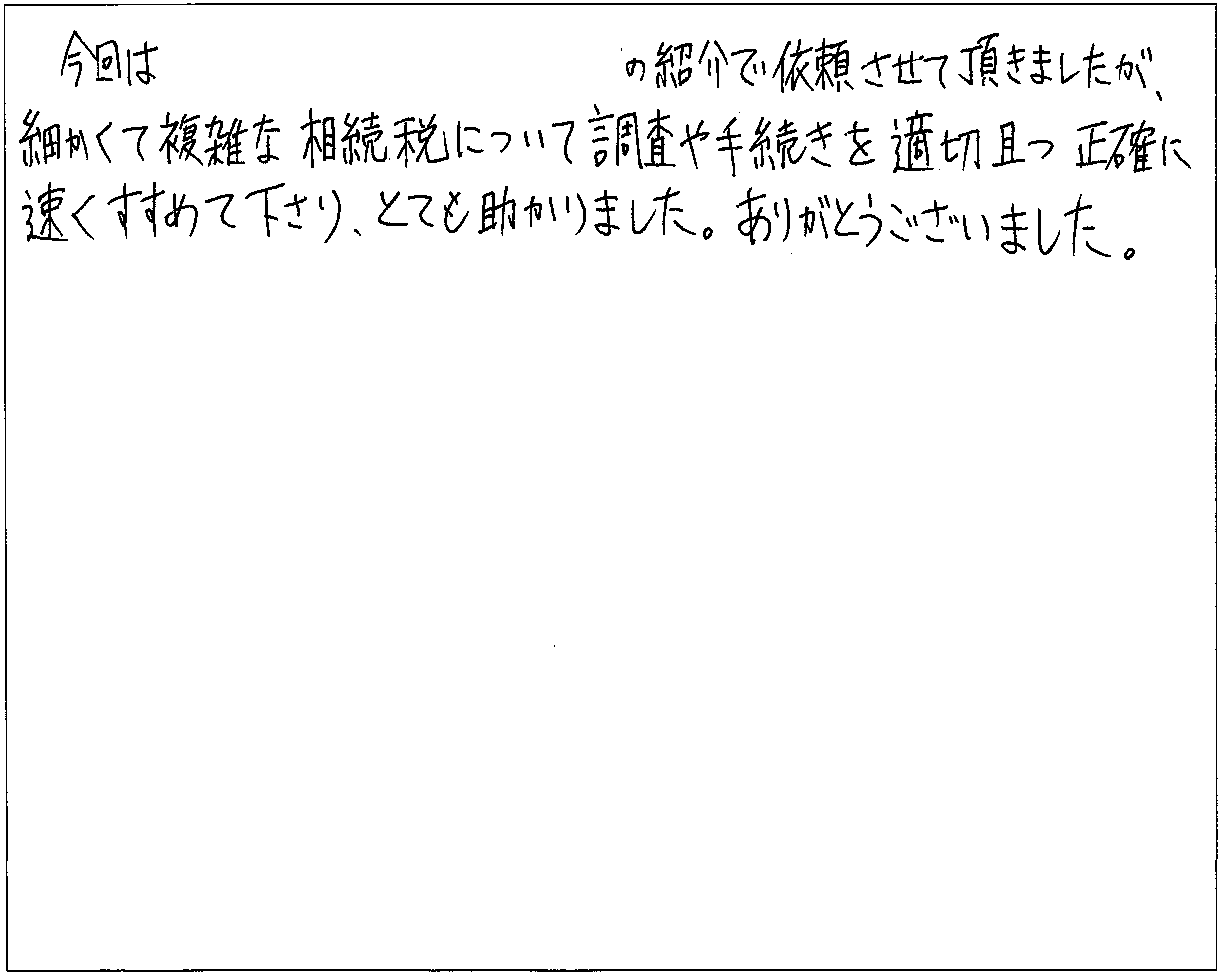 今回は　　　　　　　　の紹介で依頼させて頂きましたが、
細かくて複雑な相続税について調査や手続きを適切且つ正確に
速くすすめて下さり、とても助かりました。ありがとうございました。